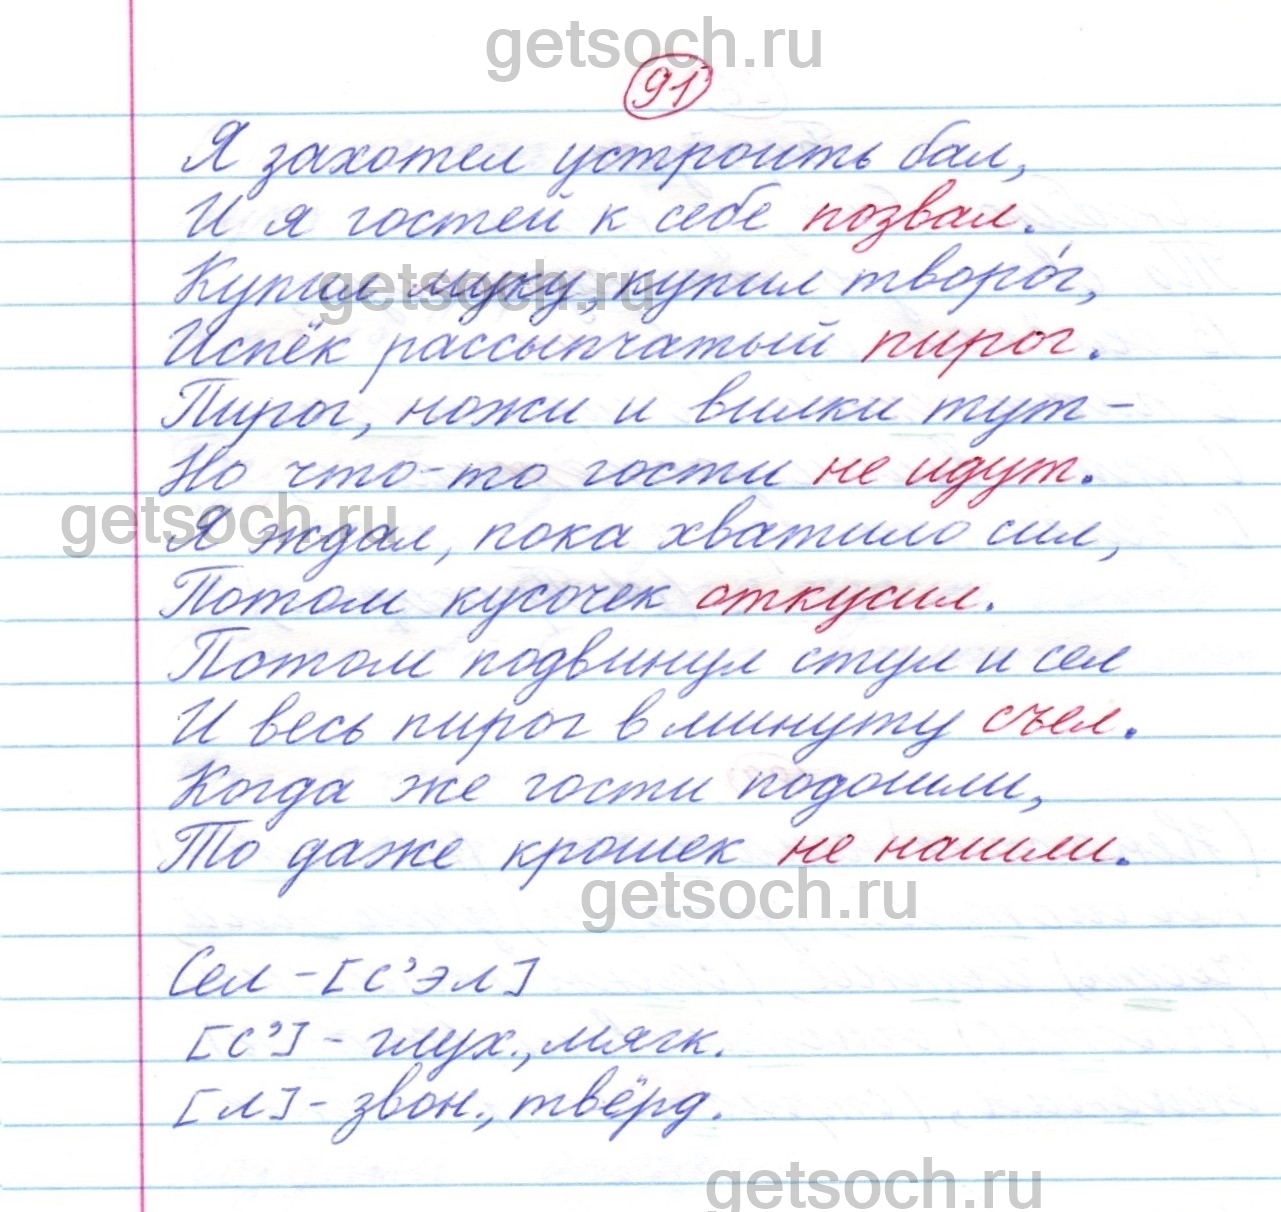 getsoch.ru
91
Я захотел устроить бал,
И я гостей к себе позвал.
Купил муку, купил творо́г,
getsoch.ru
Испёк рассыпчатый пирог.
Пирог, ножи и вилки тут –
Но что-то гости не идут.
getsoch.ru
Я ждал, пока хватило сил,
Потом кусочек откусил.
Потом подвинул стул и сел
И весь пирог в минуту съел.
Когда же гости подошли,
То даже крошек не нашли.
getsoch.ru
Сел – [с’эл]
[с’] – глух., мягк.
[л] – звон., твёрд.
getsoch.ru